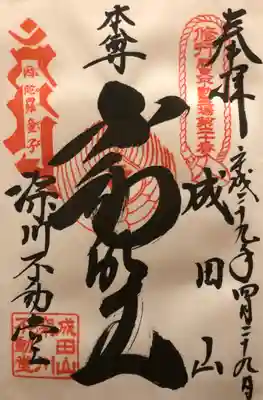 奉拝
平成二十九年四月二十九日
成田山
本尊
不動明王
深川不動堂
成田山
不動堂